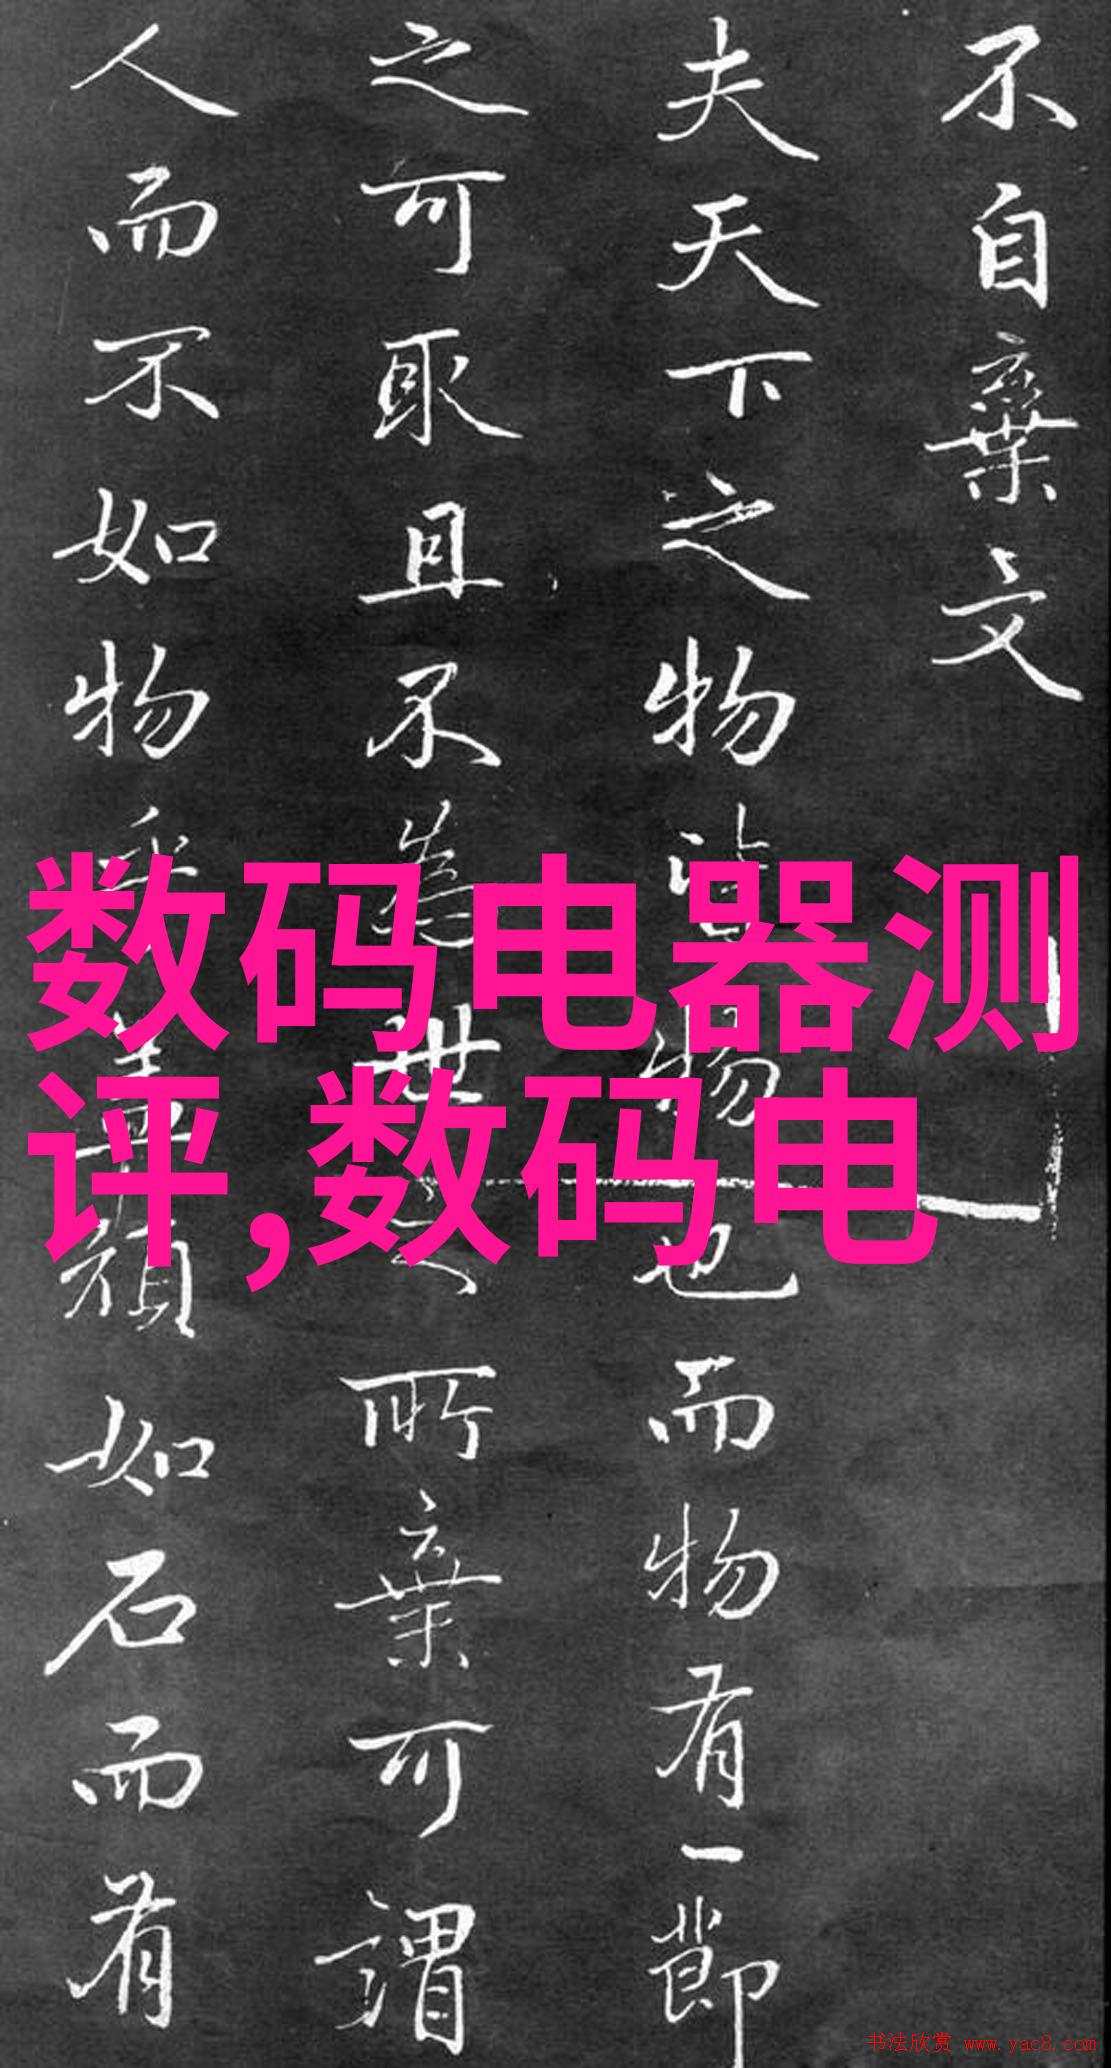 不自棄文
夫天下之物皆物也而物有一節
之可取且不為世之所棄可謂
人而不如物乎蓋頑如石而有
数码电器测
评,数码电
书法欣赏 www.yac8.com